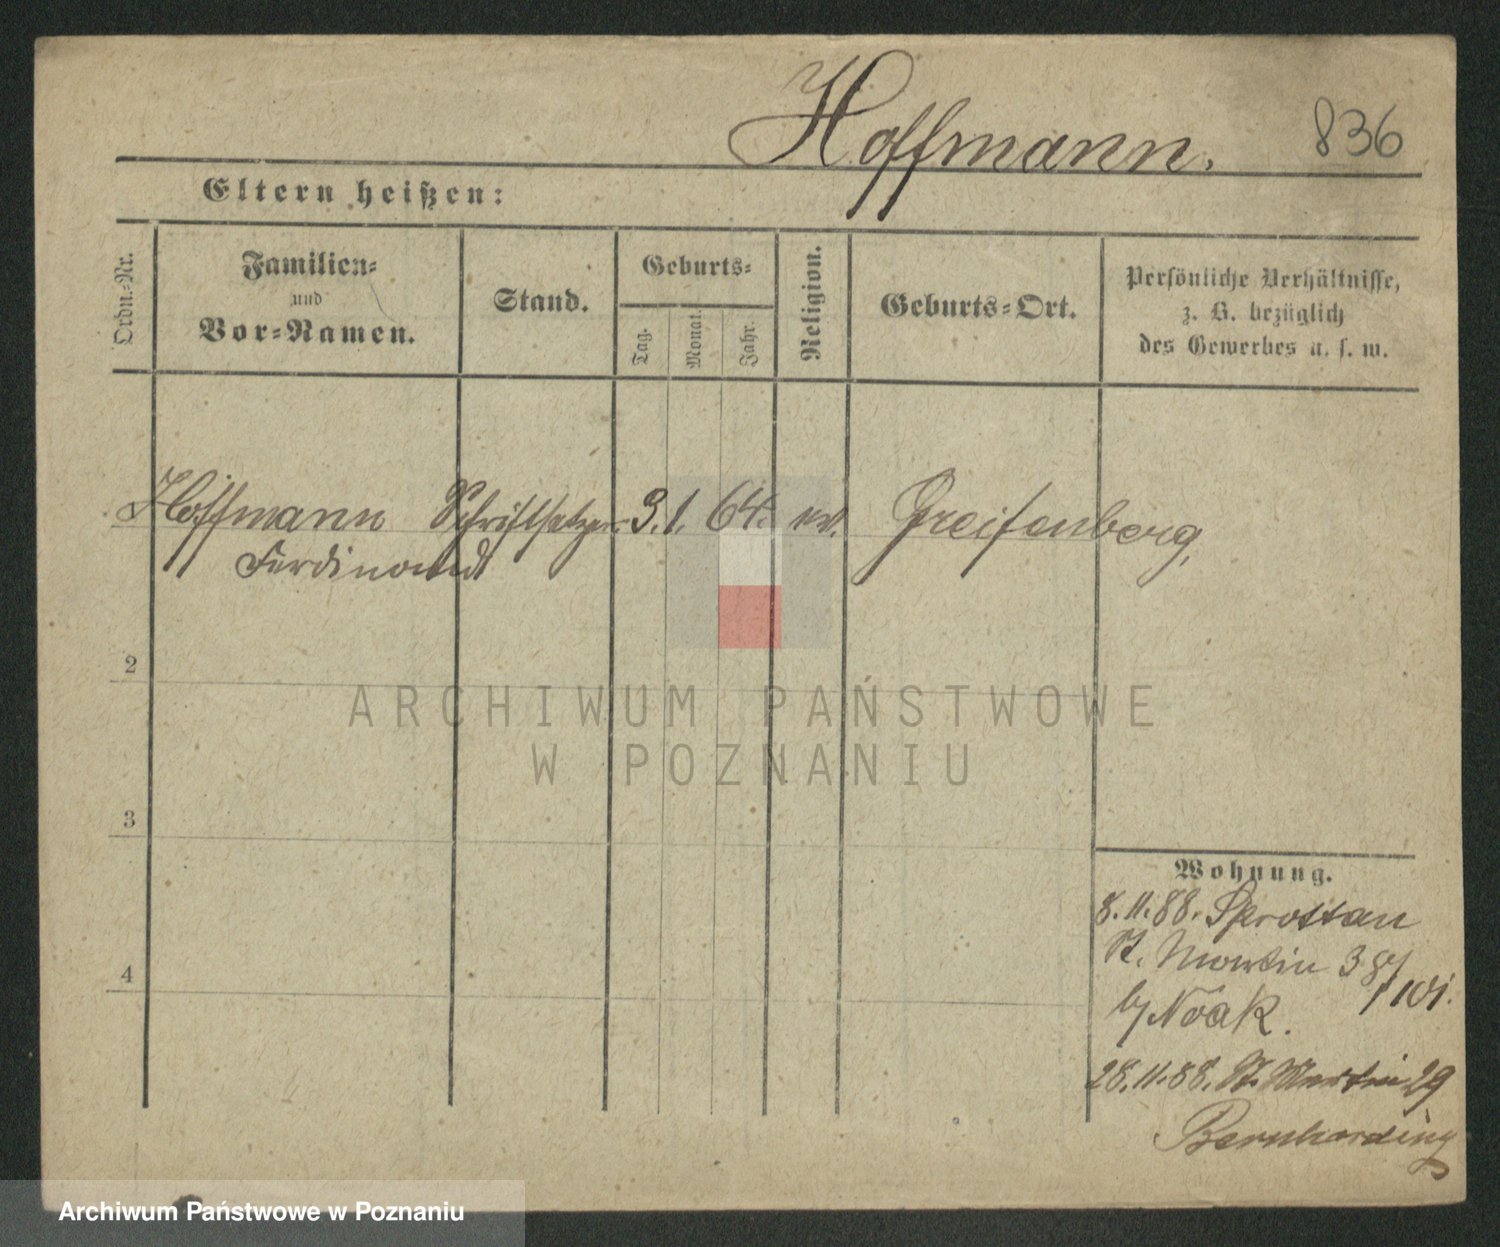 Hoffmann.
836
Eltern heißen:
Ordn.-Nr.
Familien-
und
Vor-Namen.
Stand.
Geburts-
Tag.
Monat.
Jahr.
Religion.
Geburts-Ort.
Persönliche Verhältnisse,
z. B. bezüglich
des Gewerbes u. s. w.
Hoffmann Schriftsetzer 3. 1. 64. ev. Greifenberg,
Ferdinand
2
3
4
ARCHIWUM PAŃSTWOWE
W POZNANIU
Wohnung.
8.11.88. Sprottau
St. Martin 38
b/ Noak.
28.11.88. St. Martin 29
Archiwum Państwowe w Poznaniu